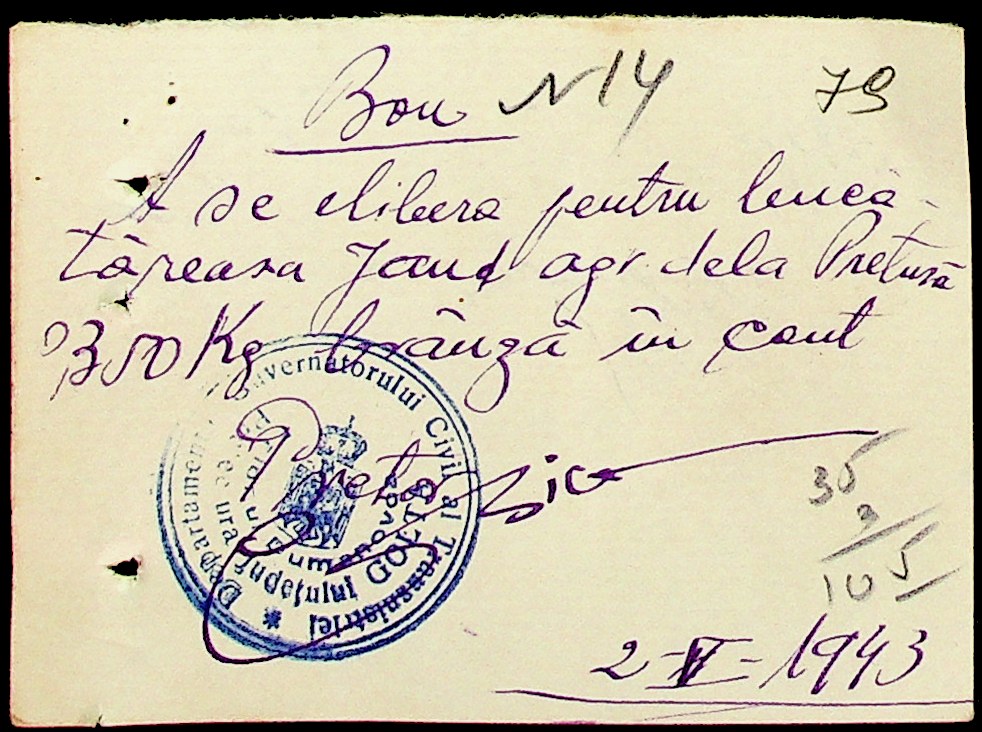 Bon N 14 79
A se elibera pentru bucă-
tăreasa Jand agr dela Pretură
3,500 Kg brânză în cont
Pretor
35
3
105
2-V-1943
Departamentul Guvernatorului Civil al Transnistriei *
Județului GOLTA
Dumanovca